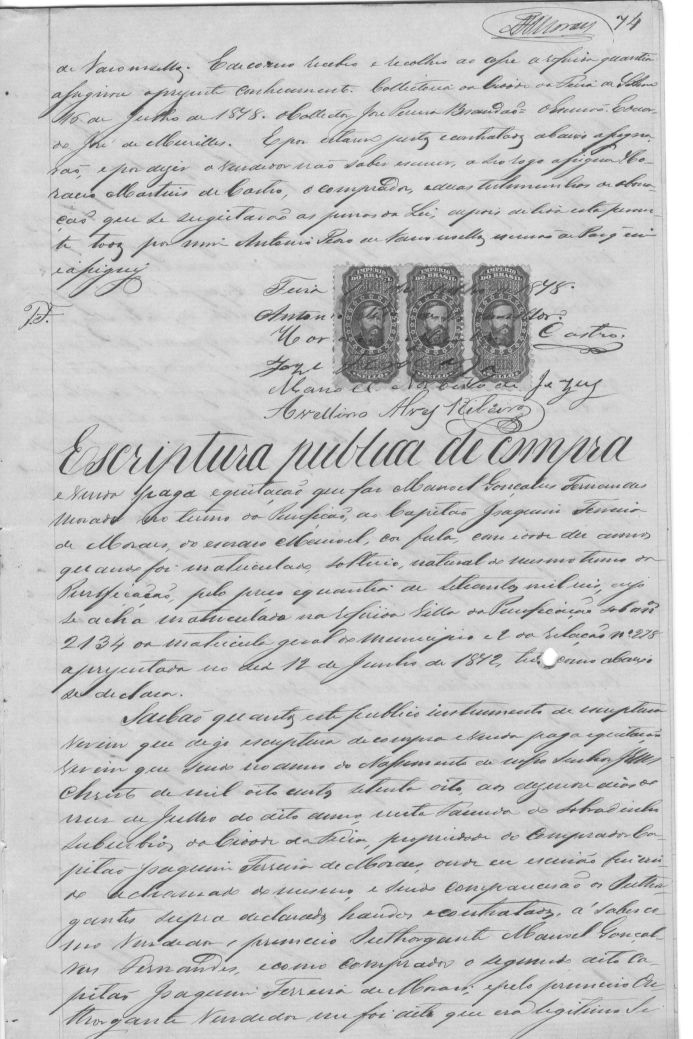 74
de Vasconsellos. E de como recebeo e recolheo ao cofre a referida quantia
assignou o presente conhecimento. Collectoria da Cidade da Feira de
15 de Julho de 1878. O Collector, José Pereira Brandão = O Escrivão,
José de Meirelles. E por estarem justos e contratados abaixo assigna
rão, e por dizer o vendedor não saber escrever, a seo rogo assignou Ho
racio Martins de Castro, o comprador, e duas testemunhas
que se sugeitarão as penas da Lei, depois de lida esta peran
te todos por mim Antonio de Vasconsellos escrivão de Paz
e assignei
Feira 1878.
Antonio
Hor Castro.
Joze
Manoel de Jezus
Avellino Alves Ribeiro
IMPERIO DO BRASIL
IMPERIO DO BRASIL
IMPERIO DO BRASIL
Escriptura publica de compra
e venda paga e quitação que faz Manoel Gonçalves Fernandes
morador no termo da Purificação, ao Capitão Joaquim Ferreira
de Moraes, do escravo Manoel, cor fula, com idade de annos
quando foi matriculado, solteiro, natural do mesmo termo da
Purificação, pelo preço e quantia de mil reis, cujo
se acha matriculado na referida Villa da Purificação sob o nº
2134 da matricula geral do municipio e 2 da relação nº 278
apresentada no dia 12 de Junho de 1872, como abaixo
se declara.
Saibão quantos este publico instrumento de escriptura
virem que digo escriptura de compra e venda paga e quitação
virem que sendo no anno do Nascimento de nosso Senhor Jesus
Christo de mil oito centos setenta oito, aos dias do
mez de Julho do dito anno, nesta Fazenda do Sobradinho
suburbios da Cidade da Feira, propriedade do Comprador Ca
pitão Joaquim Ferreira de Moraes, onde eu escrivão fui vin
do a chamado do mesmo, e sendo comparecerão os outhor
gantes supra declarados havidos e contratados, á saber co
mo vendedor e primeiro outhorgante Manoel Gonçal
ves Fernandes, e como comprador o segundo dito Ca
pitão Joaquim Ferreira de Moraes; e pelo primeiro Ou
thorgante Vendedor me foi dito que era legitimo Se